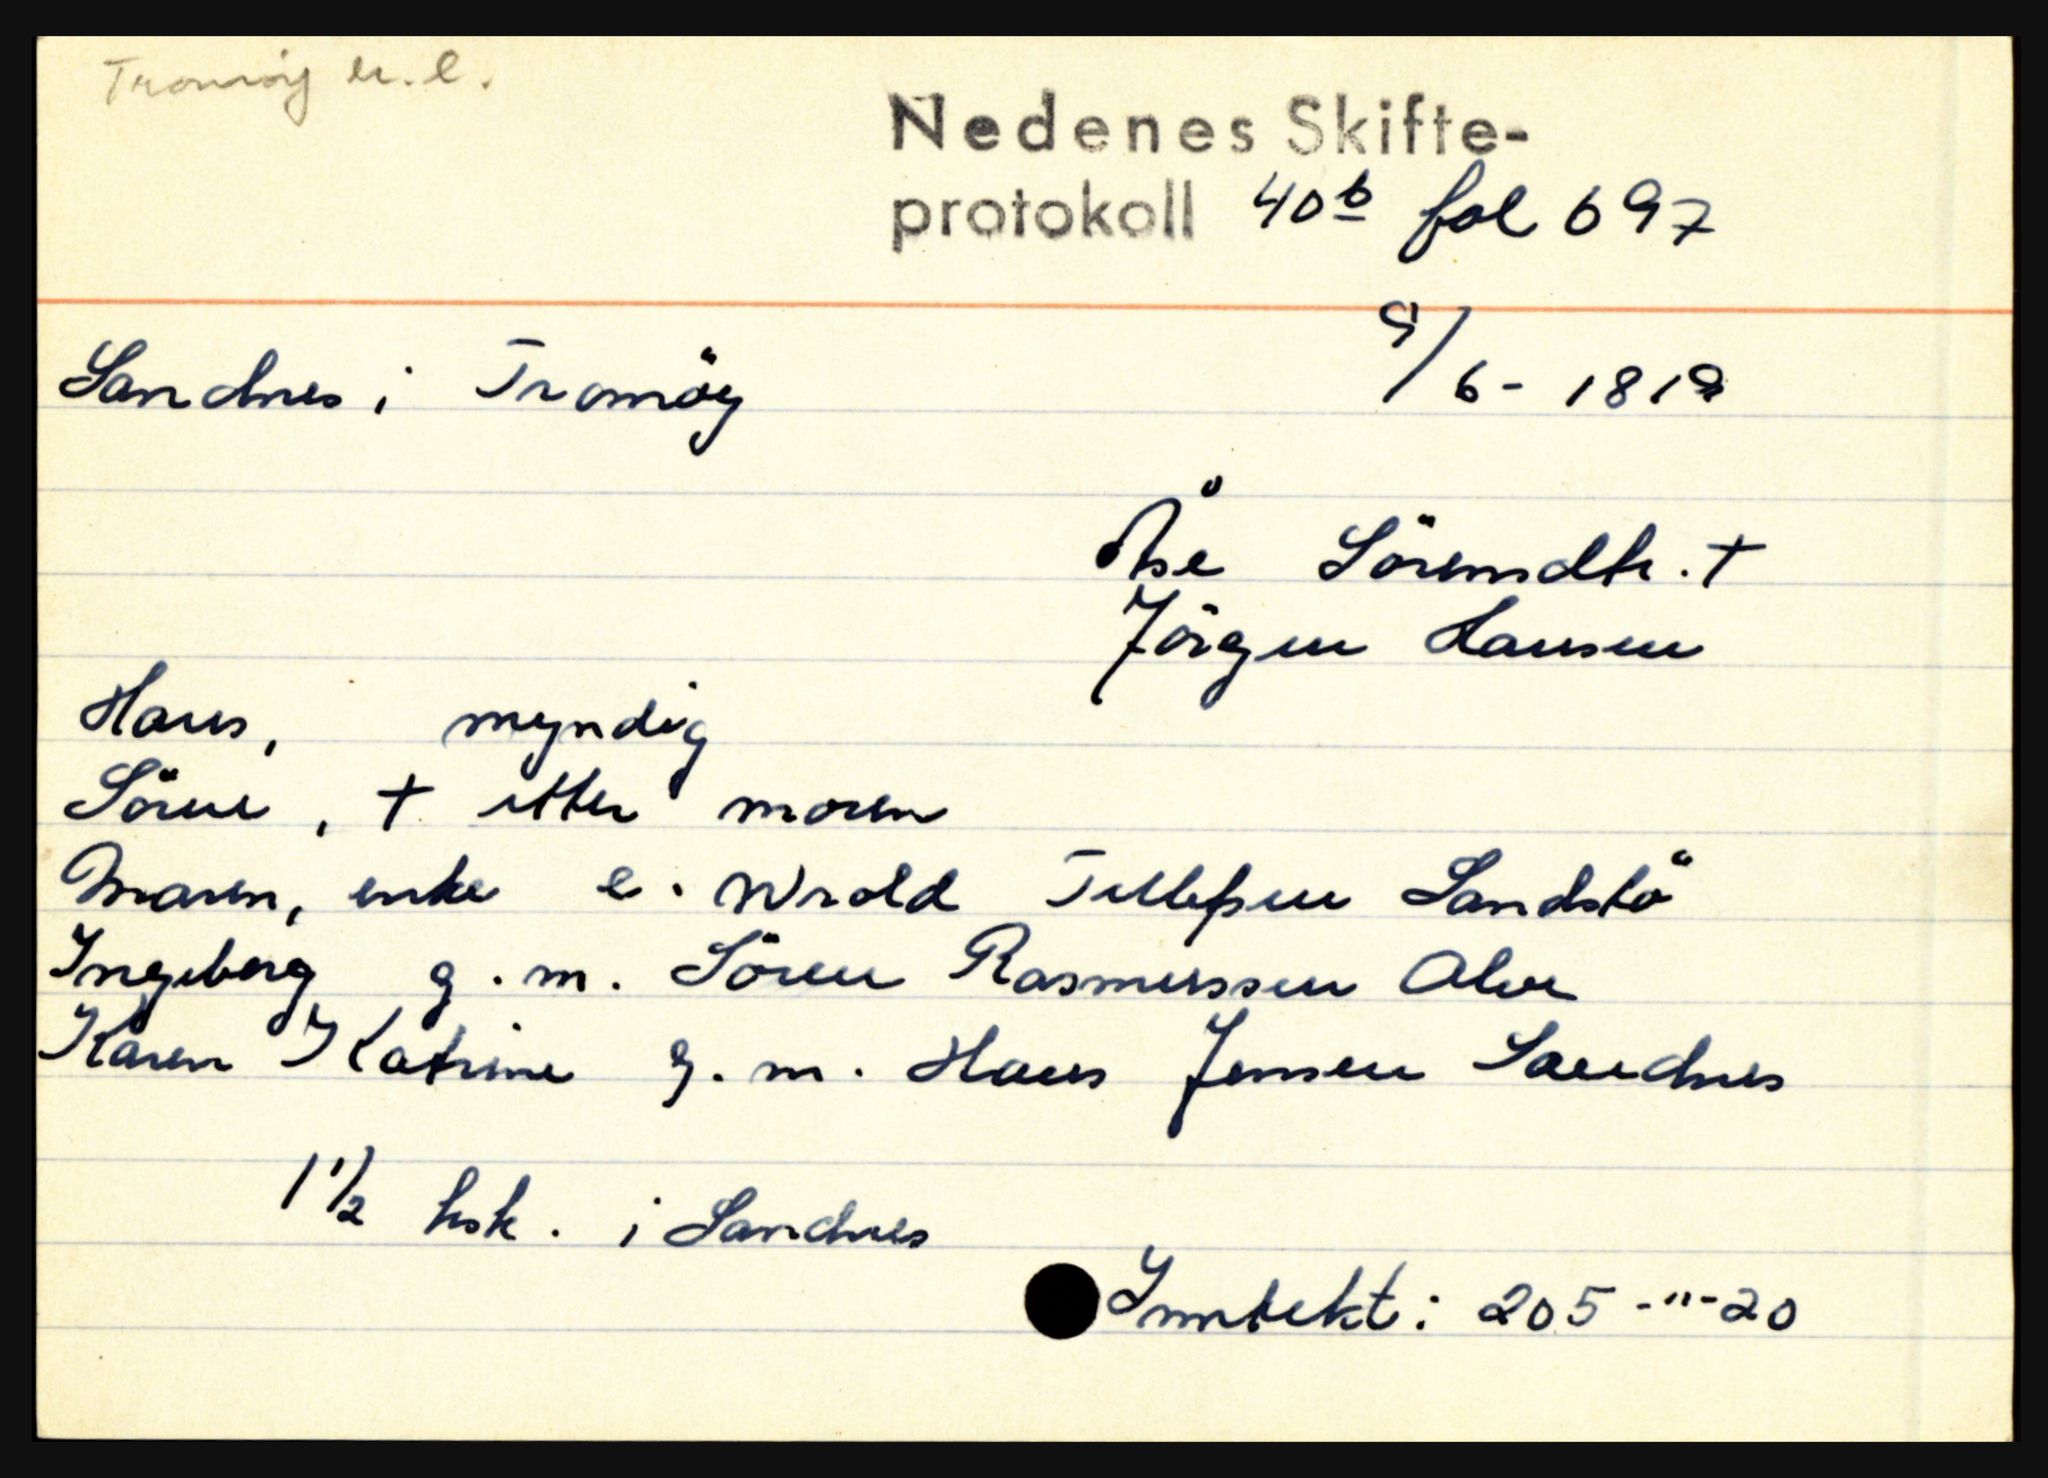 Tromöy
Nedenes Skifte-
protokoll 40b fol 697
Sandnes i Tromöy 9/6-1819
Åse Sörensdtr. †
Jörgen Hansen
Hans, myndig
Sören, † etter moren
Maren, enke e. Wrold Tellefsen Sandstö
Ingeborg g.m. Sören Rasmussen Alve
Karen Katrine g.m. Hans Jensen Sandnes
1 1/2 hsk. i Sandnes
Inntekt: 205-"-20